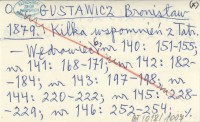 GUSTAWICZ Bronisław
1879. Kilka wspomnień z Tatr.
— Wędrowiec, nr 140: 151-155;
nr 141: 168-171; nr 142: 182-
-184; nr 143: 197-198; nr
144: 220-222; nr 145: 228-
-229; nr 146: 252-254.